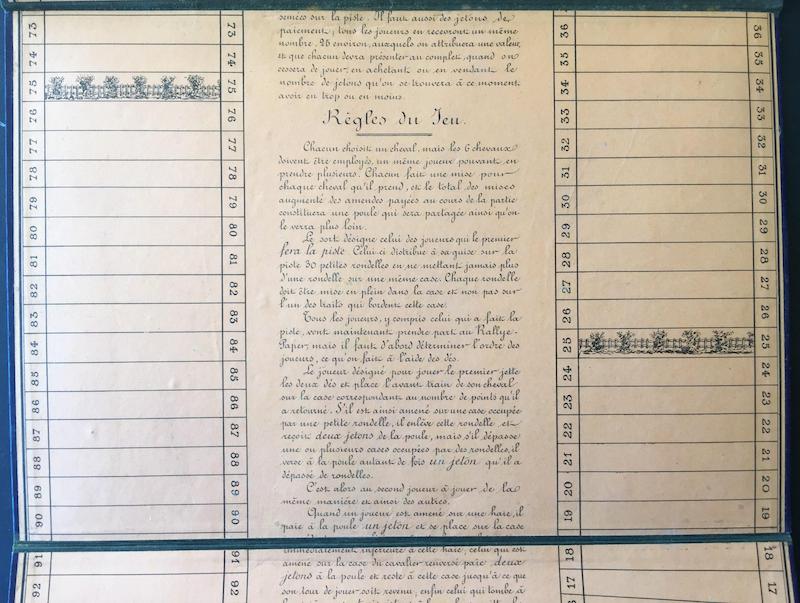 semées sur la piste. Il faut aussi des jetons de
paiement; tous les joueurs en recevront un même
nombre, 25 environ, auxquels on attribuera une valeur,
et que chacun devra présenter au complet, quand on
cessera de jouer, en achetant ou en vendant le
nombre de jetons qu'on se trouvera à ce moment
avoir en trop ou en moins.
Règles du Jeu.
Chacun choisit un cheval, mais les 6 chevaux
doivent être employés, un même joueur pouvant en
prendre plusieurs. Chacun fait une mise pour
chaque cheval qu'il prend, et le total des mises
augmenté des amendes payées au cours de la partie
constituera une poule qui sera partagée ainsi qu'on
le verra plus loin.
Le sort désigne celui des joueurs qui le premier
fera la piste. Celui-ci distribue à sa guise sur la
piste 30 petites rondelles en ne mettant jamais plus
d'une rondelle sur une même case. Chaque rondelle
doit être mise en plein dans la case et non pas sur
l'un des traits qui bordent cette case.
Tous les joueurs, y compris celui qui a fait la
piste, vont maintenant prendre part au Rallye-
Paper; mais il faut d'abord déterminer l'ordre des
joueurs, ce qu'on fait à l'aide des dés.
Le joueur désigné pour jouer le premier jette
les deux dés et place l'avant train de son cheval
sur la case correspondant au nombre de points qu'il
a retourné. S'il est ainsi amené sur une case occupée
par une petite rondelle, il enlève cette rondelle et
reçoit deux jetons de la poule, mais s'il dépasse
une ou plusieurs cases occupées par des rondelles, il
verse à la poule autant de fois un jeton qu'il a
dépassé de rondelles.
C'est alors au second joueur à jouer de la
même manière et ainsi des autres.
Quand un joueur est amené sur une haie, il
paie à la poule un jeton et se place sur la case
immédiatement inférieure à cette haie; celui qui est
amené sur la case du cavalier renversé paie deux
jetons à la poule et reste à cette case jusqu'à ce que
son tour de jouer soit revenu; enfin celui qui tombe à
73
74
75
76
77
78
79
80
81
82
83
84
85
86
87
88
89
90
91
92
73
74
75
76
77
78
79
80
81
82
83
84
85
86
87
88
89
90
91
92
36
35
34
33
32
31
30
29
28
27
26
25
24
23
22
21
20
19
18
17
36
35
34
33
32
31
30
29
28
27
26
25
24
23
22
21
20
19
18
17